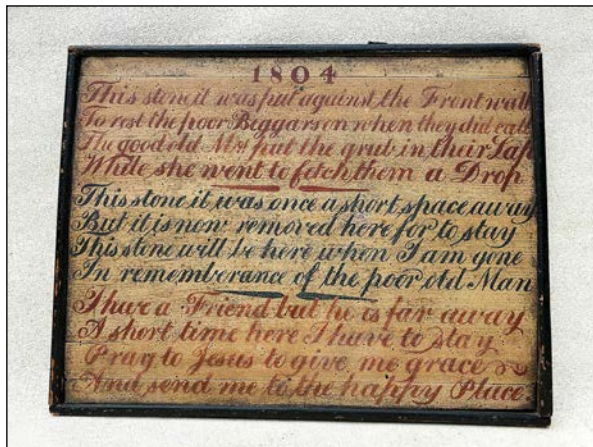 1804
This stone it was put against the Front wall
To rest the poor Beggars on when they did call
The good old Mrs put the grub in their Lap
While she went to fetch them a Drop
This stone it was once a short space away
But it is now removed here for to stay
This stone will be here when I am gone
In rememberance of the poor old Man
I have a Friend but he is far away
A short time here I have to stay
Pray to Jesus to give me grace
And send me to the happy Place